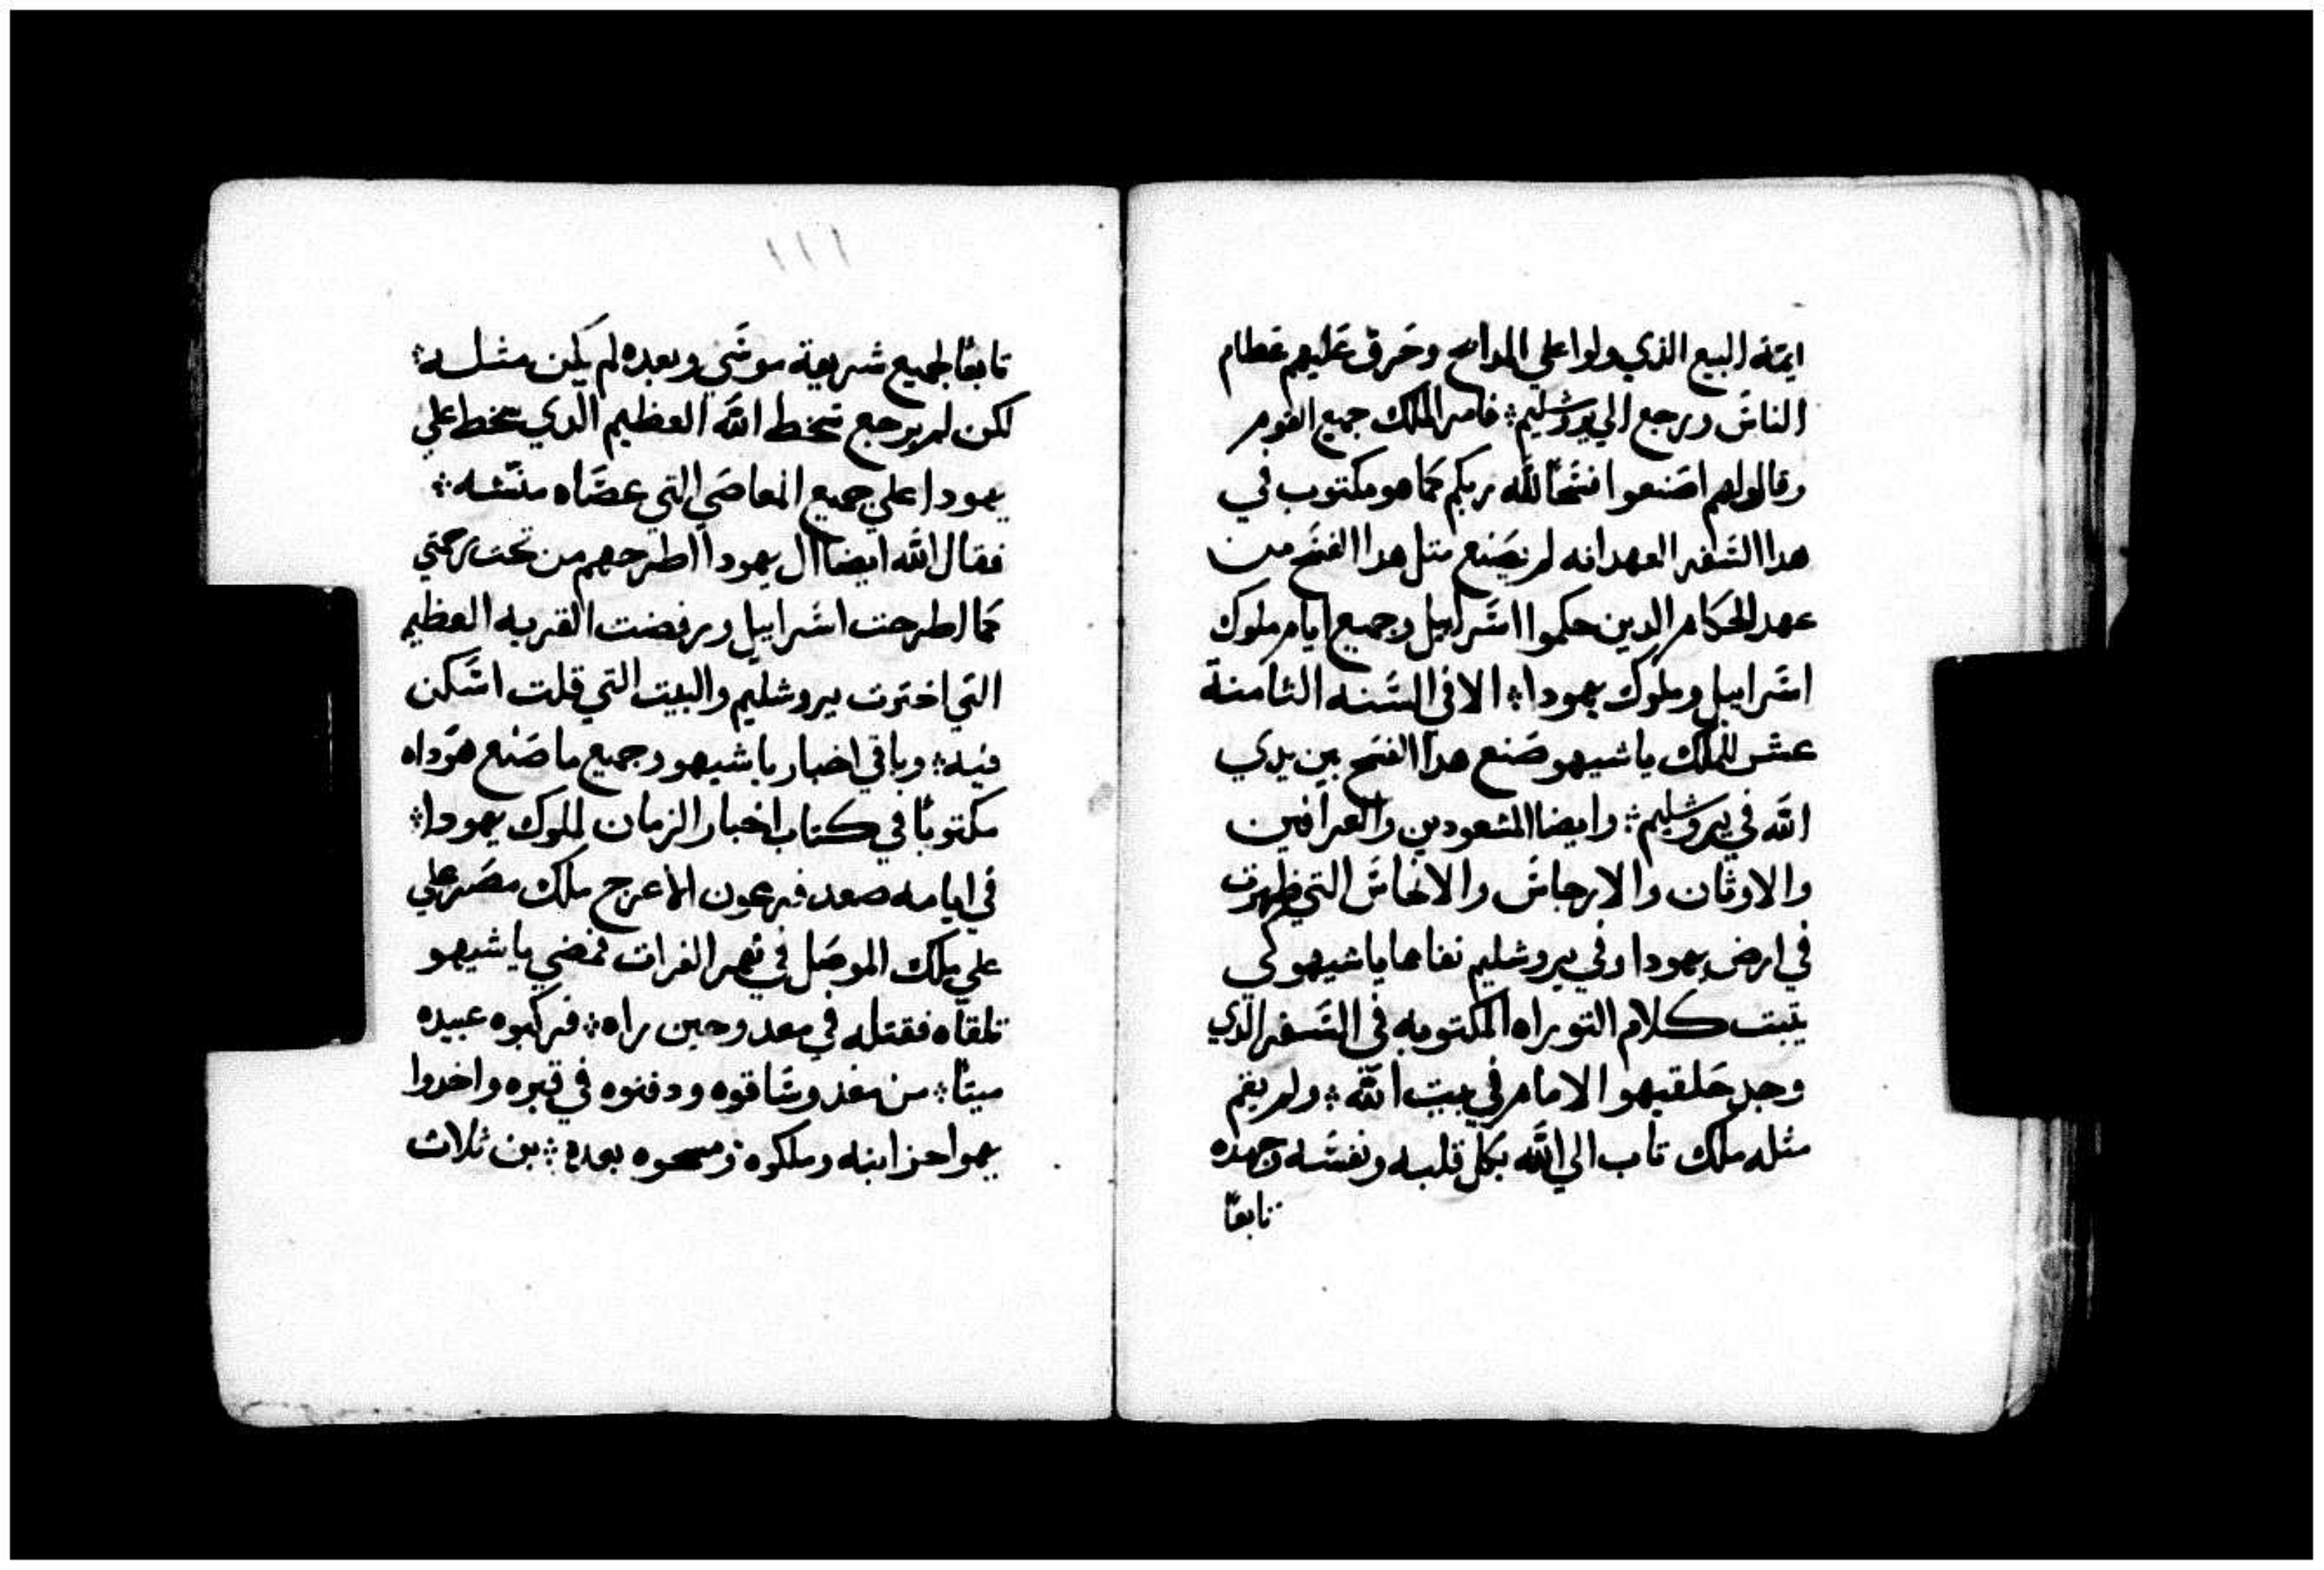 ايمة البيع الذي ولوا علي المدابح وحرق عليهم عظام
الناس ورجع الي يروشليم فامر الملك جميع القوم
وقالوا لهم اصنعوا فسحًا لله ربكم كما هو مكتوب في
هدا السفر العهد انه لم يصنع متل هدا الفسح من
عهد الحكام الدين حكموا اسرابيل وجميع ايام ملوك
اسرابيل وملوك يهودا الا في السنه الثامنة
عشر للملك ياشيهو صنع هدا الفسح بين يدي
الله في يروشليم وايضا المشعودين والعرافين
والاوثان والارجاس والانحاس التي ظهرت
في ارض يهودا وفي يروشليم نفاها ياشيهو كي
يتبت كلام التوراه المكتوبه في السفر الدي
وجد حلقيهو الامام في بيت الله ولم يقم
مثله ملك تاب الي الله بكل قلبه ونفسه وجهده
تابعًا
١١١
تابعًا لجميع شريعة موسي وبعده لم يكن مثله
لكن لم يرجع سخط الله العظيم الدي سخط علي
يهودا علي جميع المعاصي التي عصاه منسه
فقال الله ايضا ال يهودا اطرحهم من تحت رحمتي
كما اطرحت اسرابيل ورفضت القريه العظيم
التي اخترت يروشليم والبيت التي قلت اسكن
فيه وباقي اخبار ياشيهو وجميع ما صنع هوداه
مكتوبًا في كتاب اخبار الزمان لملوك يهودا
في ايامه صعد فرعون الاعرج ملك مصر علي
علي ملك الموصل في نهر الفرات فمضي ياشيهو
تلقاه فقتله في معدو حين راه فركبوه عبيده
ميتًا من مغدو وساقوه ودفنوه في قبره واخدوا
يهواحز ابنه وملكوه ومسحوه بعده بن ثلاث